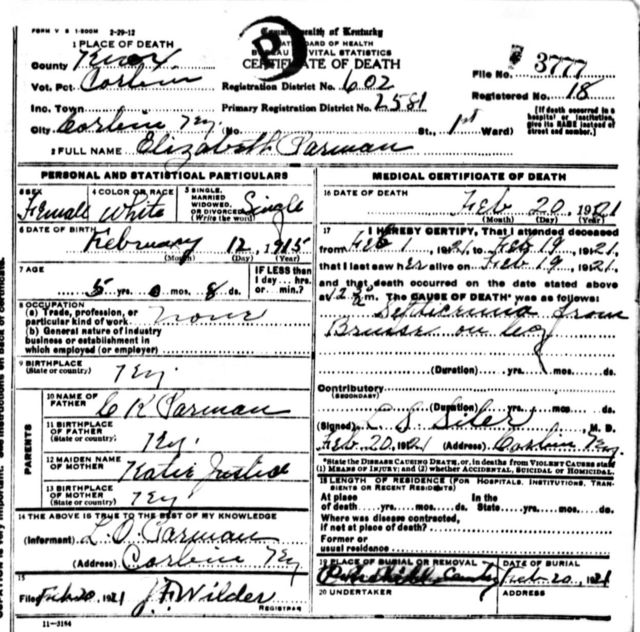 FORM V S 1-500M 2-29-12
Commonwealth of Kentucky
STATE BOARD OF HEALTH
BUREAU OF VITAL STATISTICS
CERTIFICATE OF DEATH
1 PLACE OF DEATH
County Knox
Vot. Pct. Corbin
Inc. Town
City Corbin Ky. (No. St., 1st Ward)
Registration District No. 602
Primary Registration District No. 2581
File No. 3777
Registered No. 18
[If death occurred in a hospital or institution, give its NAME instead of street and number.]
2 FULL NAME Elizabeth Parman
PERSONAL AND STATISTICAL PARTICULARS
3 SEX Female
4 COLOR OR RACE White
5 SINGLE, MARRIED WIDOWED, OR DIVORCED (Write the word) Single
6 DATE OF BIRTH February 12, 1915
(Month) (Day) (Year)
7 AGE 5 yrs. 0 mos. 8 ds.
IF LESS than 1 day ... hrs. or ... min.?
8 OCCUPATION
(a) Trade, profession, or particular kind of work none
(b) General nature of industry business or establishment in which employed (or employer)
9 BIRTHPLACE
(State or country) Ky.
PARENTS
10 NAME OF FATHER C K Parman
11 BIRTHPLACE OF FATHER (State or country) Ky.
12 MAIDEN NAME OF MOTHER Katie Justice
13 BIRTHPLACE OF MOTHER (State or country) Ky
14 THE ABOVE IS TRUE TO THE BEST OF MY KNOWLEDGE
(Informant) L. D. Parman
(Address) Corbin Ky
15
Filed Feb 20, 1921 J. F. Wilder
REGISTRAR
11-3184
MEDICAL CERTIFICATE OF DEATH
16 DATE OF DEATH Feb 20 1921
(Month) (Day) (Year)
17 I HEREBY CERTIFY, That I attended deceased
from Feb 1, 1921, to Feb 19, 1921,
that I last saw her alive on Feb 19, 1921,
and that death occurred on the date stated above
at m. The CAUSE OF DEATH* was as follows:
Septicemia from
Bruise on leg
(Duration) yrs. mos. ds.
Contributory
(SECONDARY)
(Duration) yrs. mos. ds.
(Signed) C S Siler, M. D.
Feb 20, 1921 (Address) Corbin Ky.
*State the DISEASE CAUSING DEATH, or, in deaths from VIOLENT CAUSES state
(1) MEANS OF INJURY; and (2) whether ACCIDENTAL, SUICIDAL or HOMICIDAL.
18 LENGTH OF RESIDENCE (FOR HOSPITALS, INSTITUTIONS, TRANSIENTS OR RECENT RESIDENTS)
At place of death yrs. mos. ds. In the State yrs. mos. ds.
Where was disease contracted, if not at place of death?
Former or usual residence
19 PLACE OF BURIAL OR REMOVAL
DATE OF BURIAL Feb 20, 1921
20 UNDERTAKER